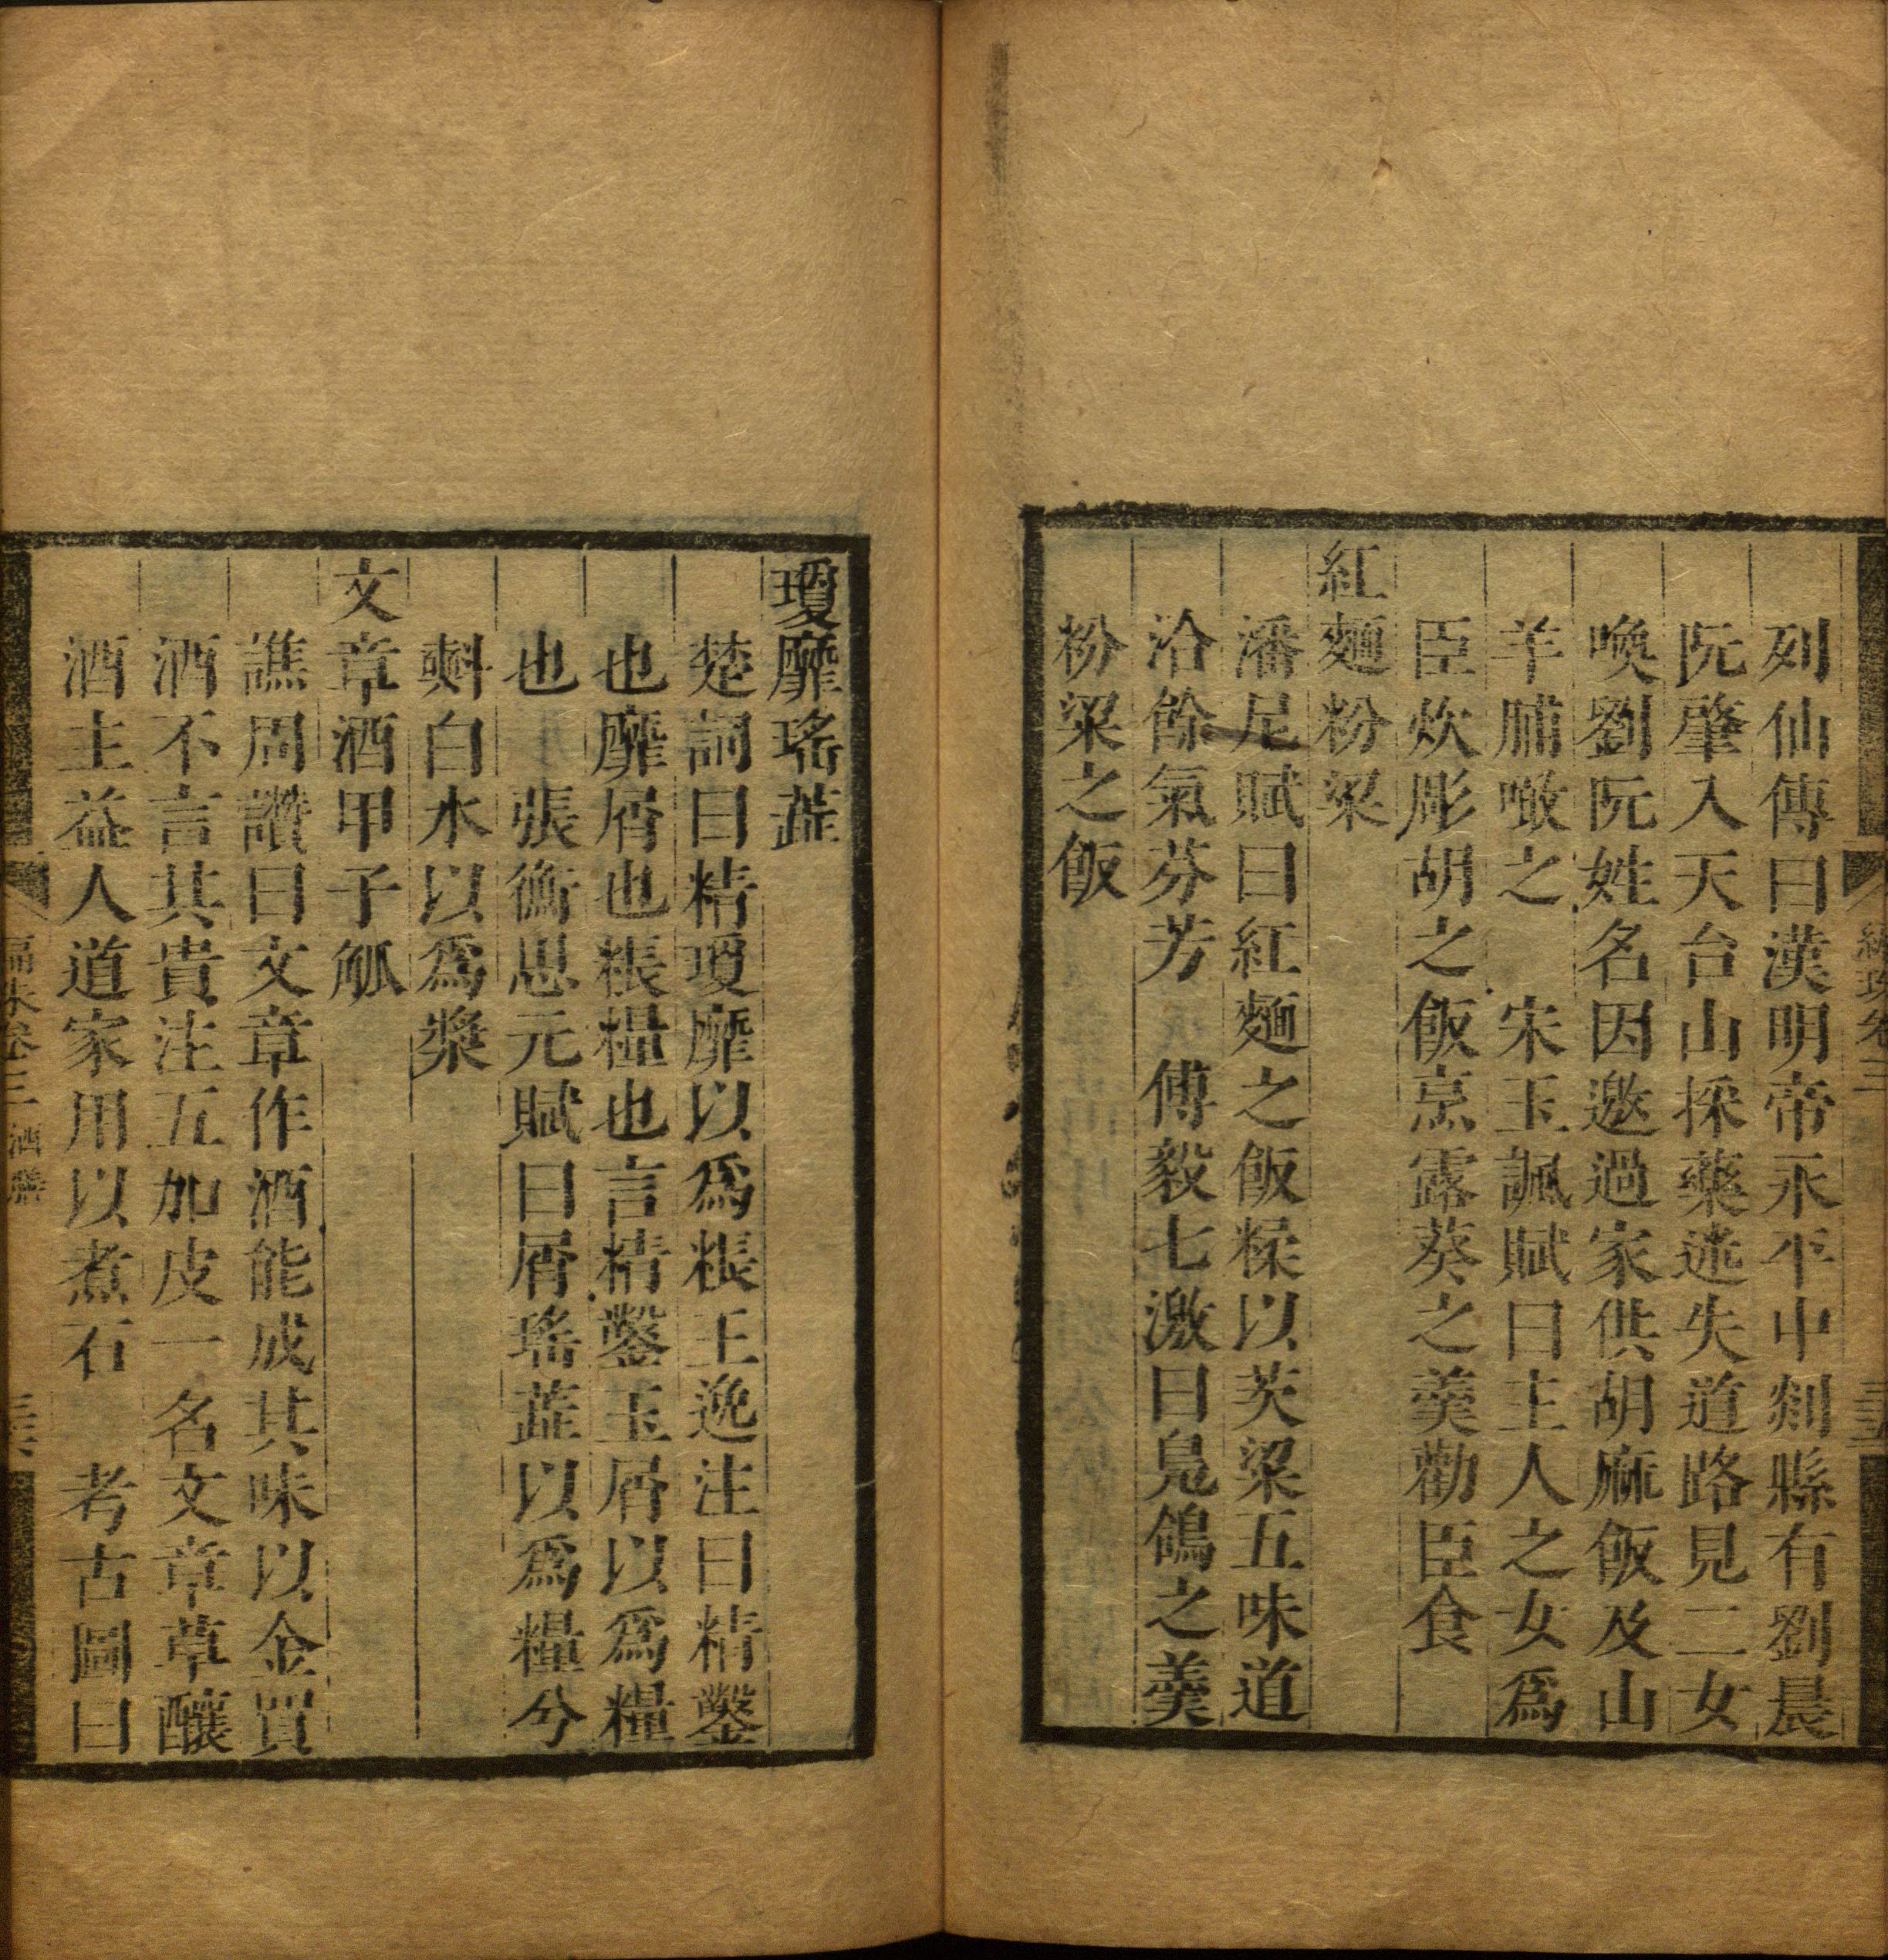 列仙傳曰漢明帝永平中剡縣有劉晨
阮肇入天台山採藥迷失道路見二女
喚劉阮姓名因邀過家供胡麻飯及山
羊脯噉之　宋玉諷賦曰主人之女爲
臣炊彫胡之飯烹露葵之羹勸臣食
紅麵粉粱
潘尼賦曰紅麵之飯糅以茨粱五味道
洽餘氣芬芳　傅毅七激曰鳧鴿之羹
粉粱之飯
瓊靡瑤蘂
楚詞曰精瓊靡以爲粻王逸注曰精鑿
也靡屑也粻糧也言精鑿玉屑以爲糧
也　張衡思元賦曰屑瑤蘂以爲糧兮
㪺白水以爲漿
文章酒甲子觚
譙周讚曰文章作酒能成其味以金買
酒不言其貴注五加皮一名文章草釀
酒主益人道家用以煮石　考古圖曰
編珠卷三 酒膳 三六